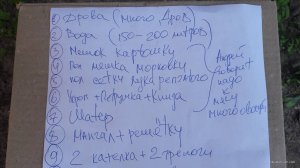 ① Дрова (много дров)
② Вода (150-200 литров)
③ Мешок картошку
④ Пол мешка морковку
⑤ пол сетки лука репчатого
⑥ Укроп + Петрушка + Кинза
⑦ Шатёр
⑧ МАНГАЛ + решётку
⑨ 2 кателка + 2 треноги
надо
к мясу
много овощей